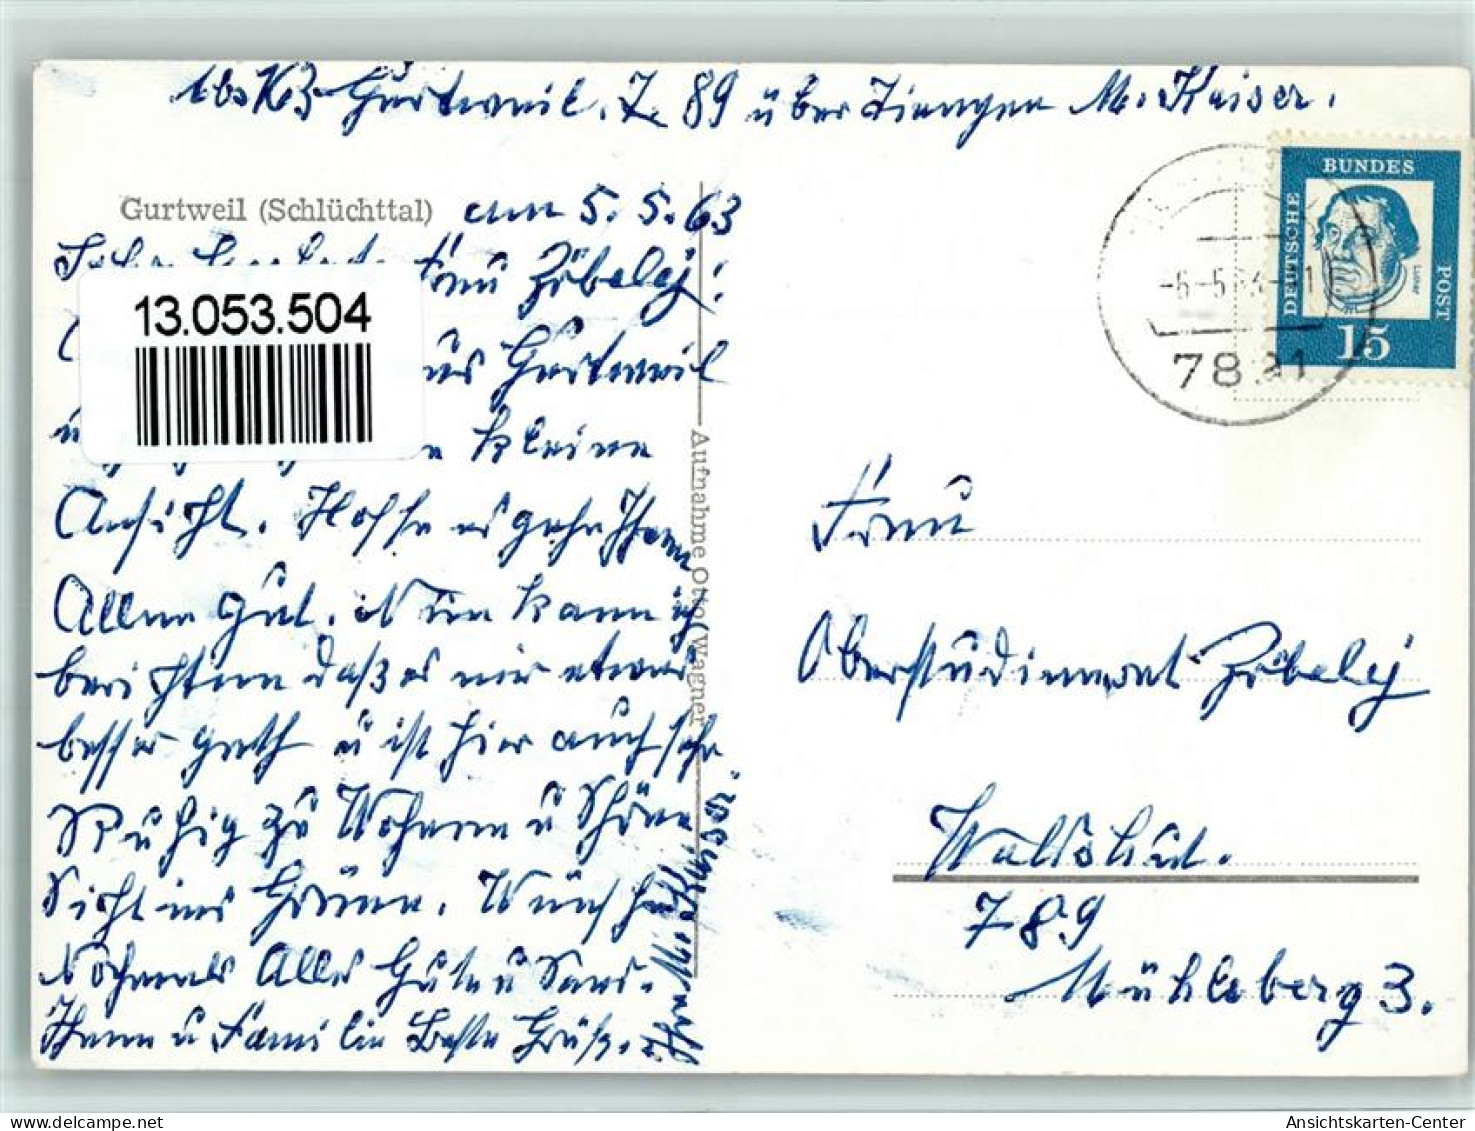 Abs. K3 Gurtweil. Z. 89 über Tiengen M. Kaiser.
Gurtweil (Schlüchttal) am 5. 5. 63
Sehr Frau Zöbeley!
aus Gurtweil
kleine
Ansicht. Hoffe es gehe Ihnen
Allen gut. Nun kann ich
berichten daß es mir etwas
besser geth u ist hier auch sehr
Ruhig zu Wohnen u Schöne
Sicht ins Grüne. Wünsche
Nochmals Alles Gute u Send.
Ihnen u Familie Beste Grüße.
M. Kaiser.
13.053.504
Aufnahme Otto Wagner
DEUTSCHE BUNDES POST
Luther
15
-6-5.63-11
Frau
Oberstudienrat Zöbeley
Waldshut.
789
Mühleberg 3.
Ansichtskarten-Center